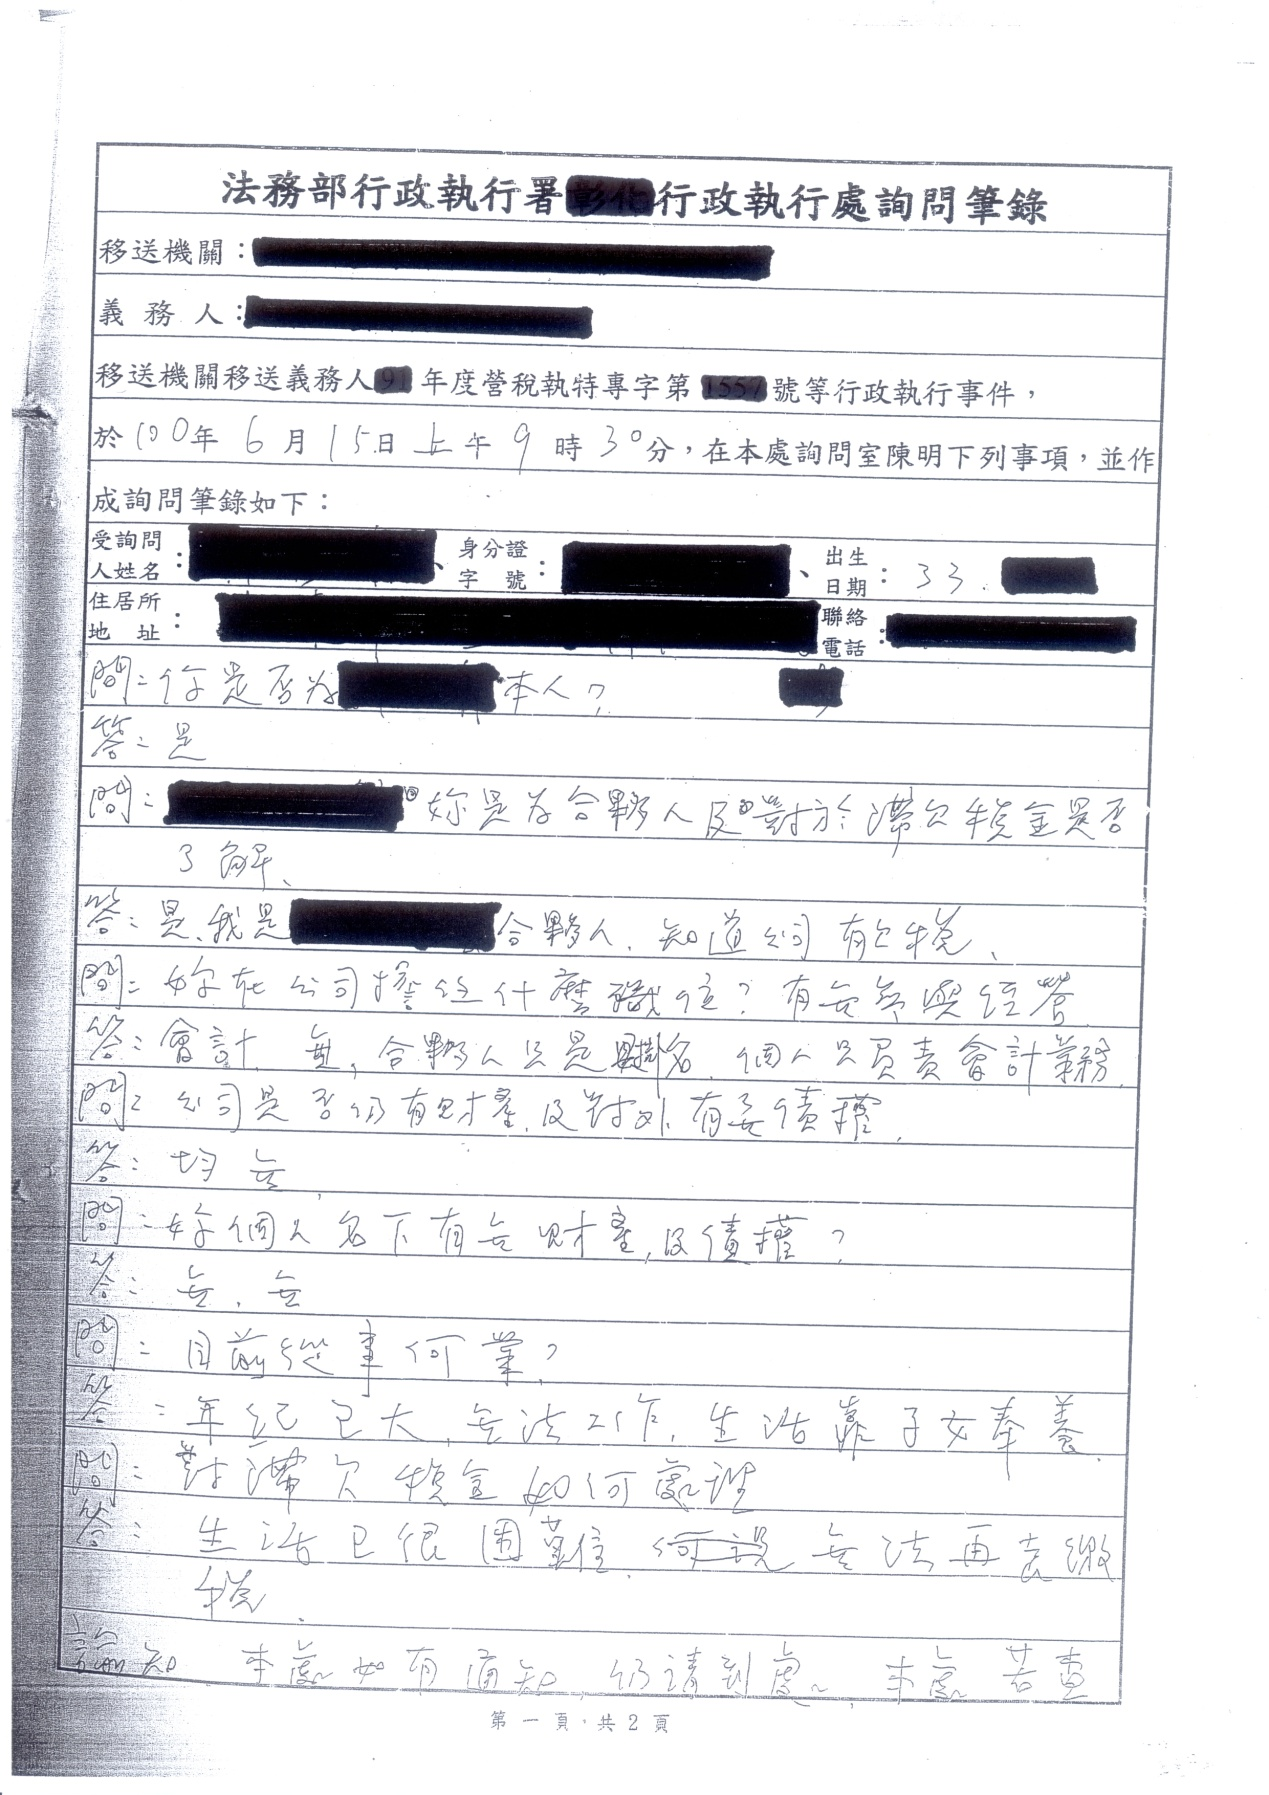 法務部行政執行署 行政執行處詢問筆錄
移送機關：
義務人：
移送機關移送義務人 年度營稅執特專字第 號等行政執行事件，
於100年6月15日上午9時30分，在本處詢問室陳明下列事項，並作
成詢問筆錄如下：
受詢問人姓名：、身分證字號：、出生日期：33.
住居所地址： 聯絡電話：
問：你是否為 本人？
答：是
問： 妳是為合夥人及對於滯欠稅金是否
了解、
答：是、我是 合夥人、知道公司有欠稅、
問：妳在公司擔任什麼職位？有無參與經營
答：會計、無，合夥人只是掛名、個人只負責會計業務、
問：公司是否仍有財產、及對外有無債權、
答：均無、
問：妳個人名下有無財產、及債權？
答：無、無
問：目前從事何業？
答：年紀已大、無法工作、生活靠子女奉養、
問：對滯欠稅金如何處理
答：生活已很困難、何況無法再去繳
稅、
諭知 本處如有通知、仍請到處、本處若查
第一頁，共2頁